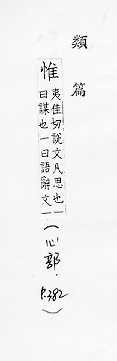 類篇
惟夷佳切說文凡思也一
曰謀也一曰語辭文一(心部.P.382)